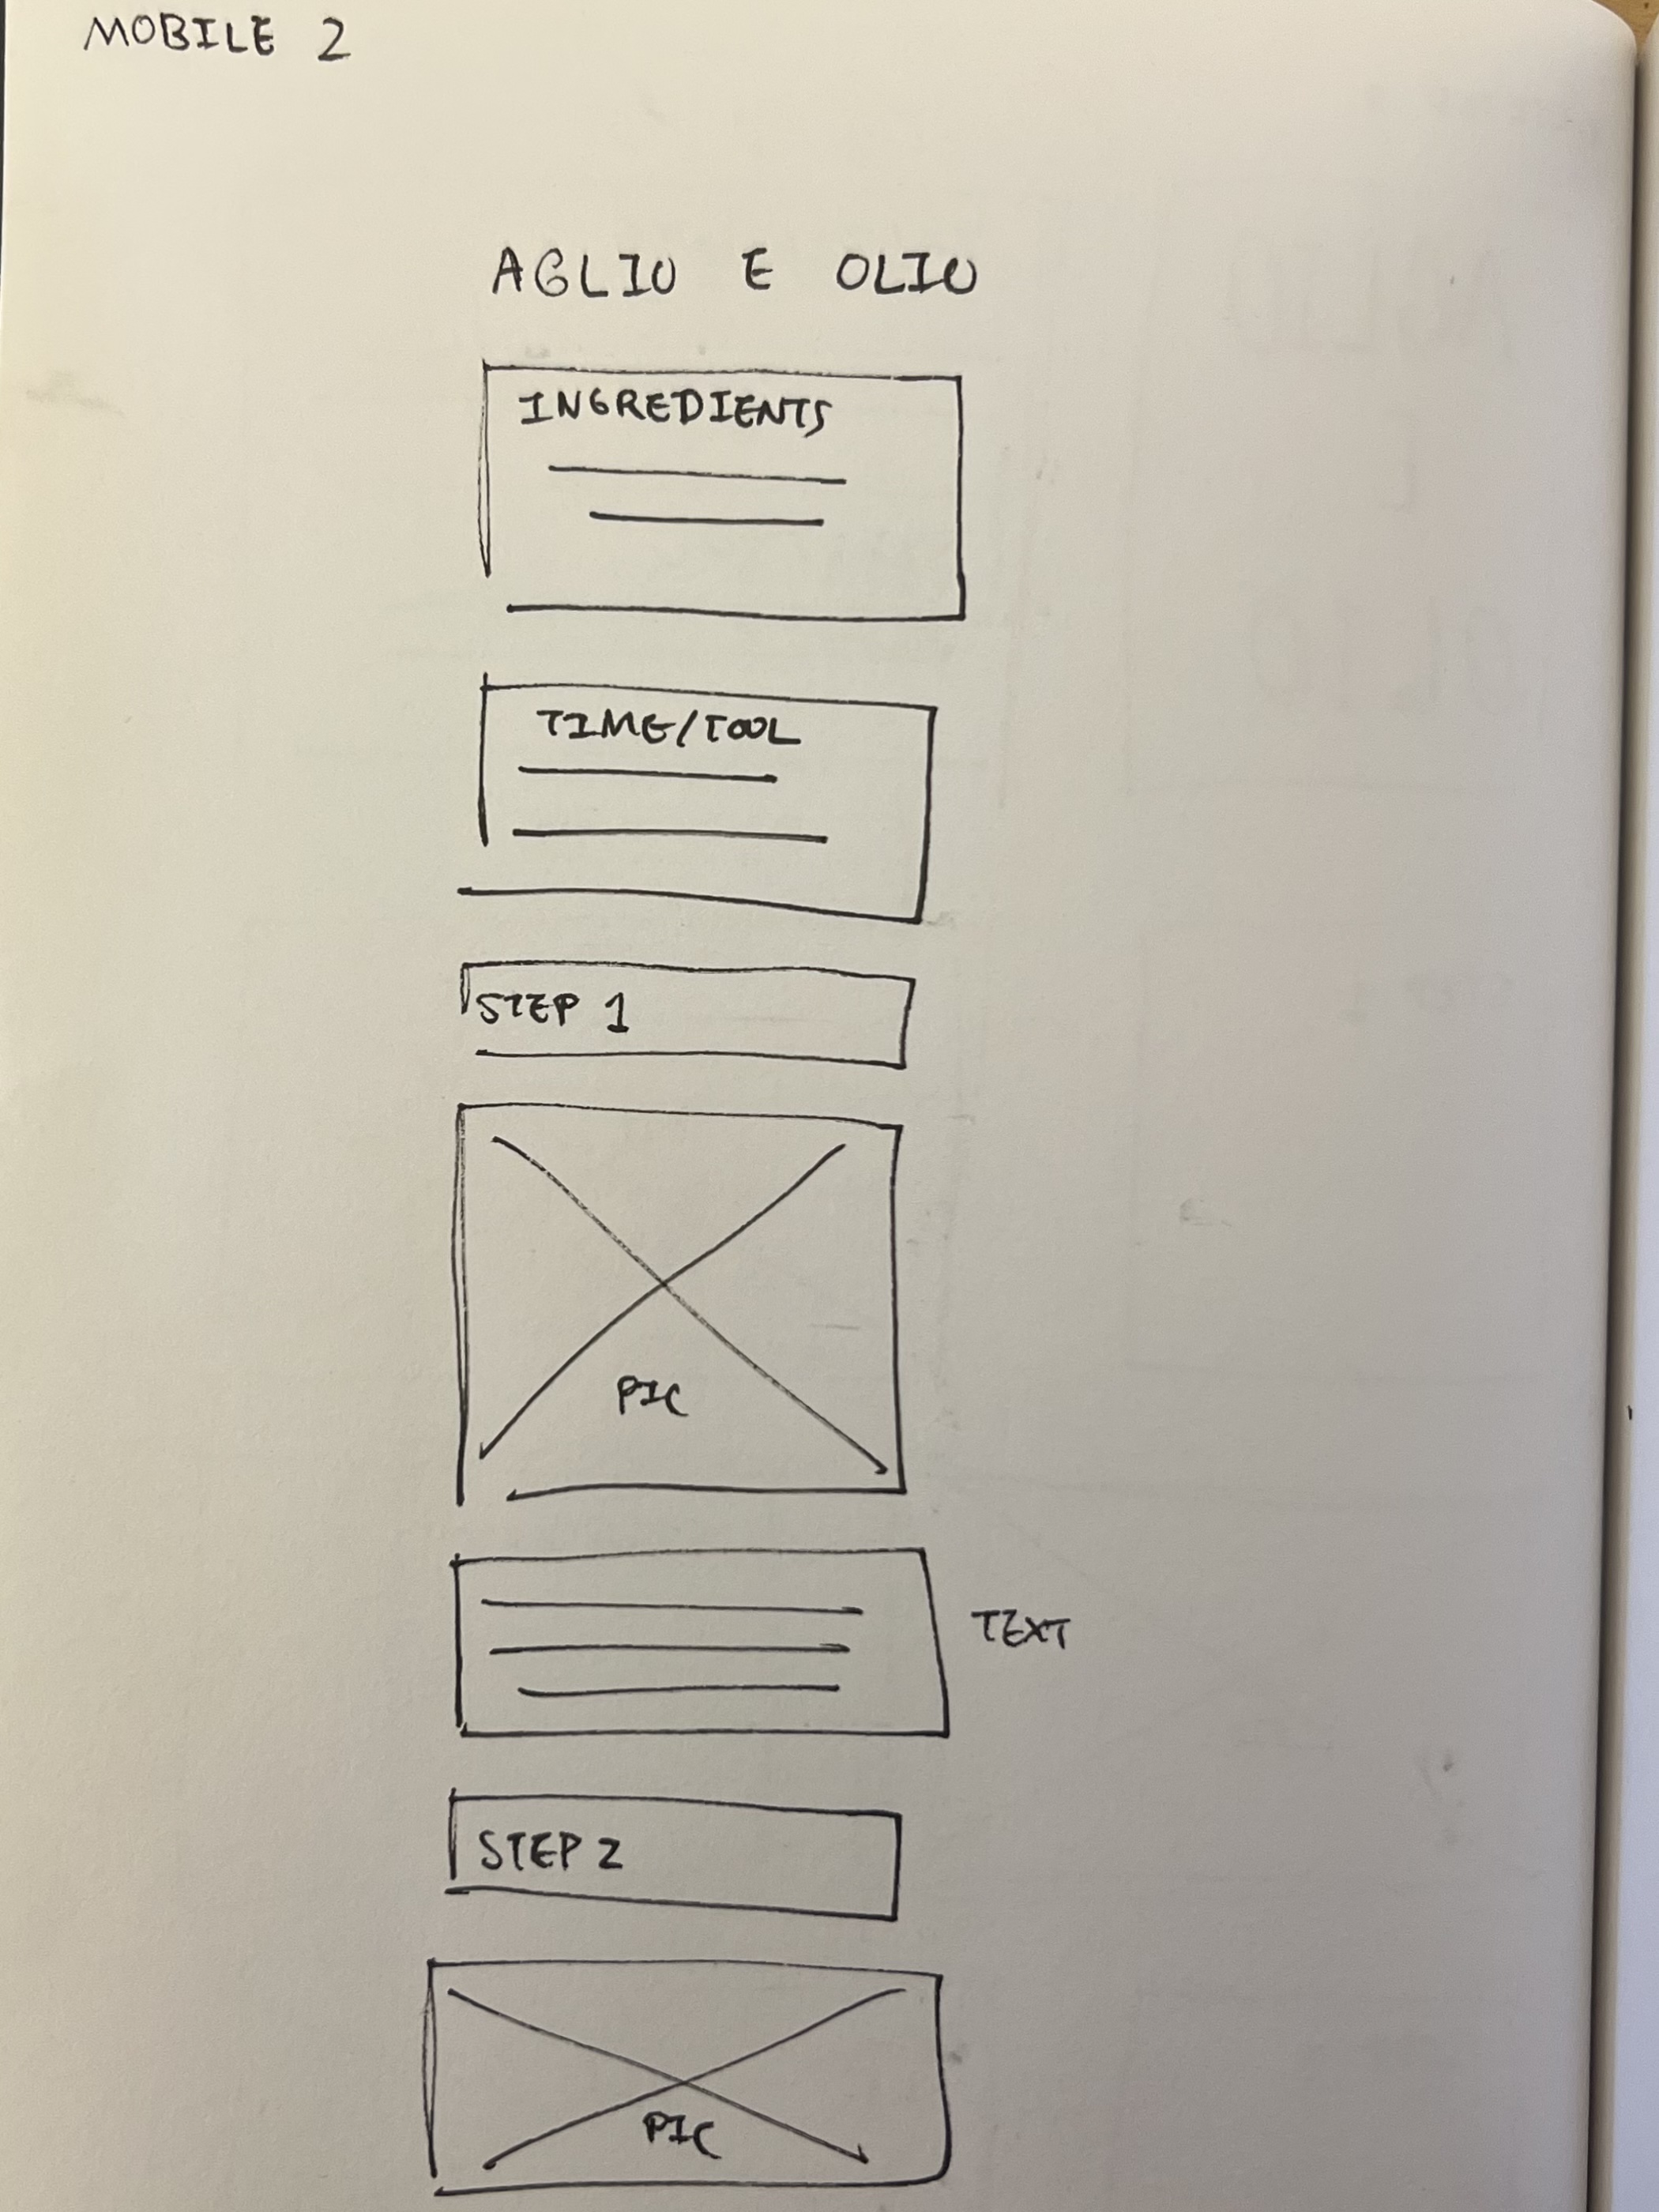 MOBILE 2
AGLIO E OLIO
INGREDIENTS
TIME/TOOL
STEP 1
PIC
TEXT
STEP 2
PIC